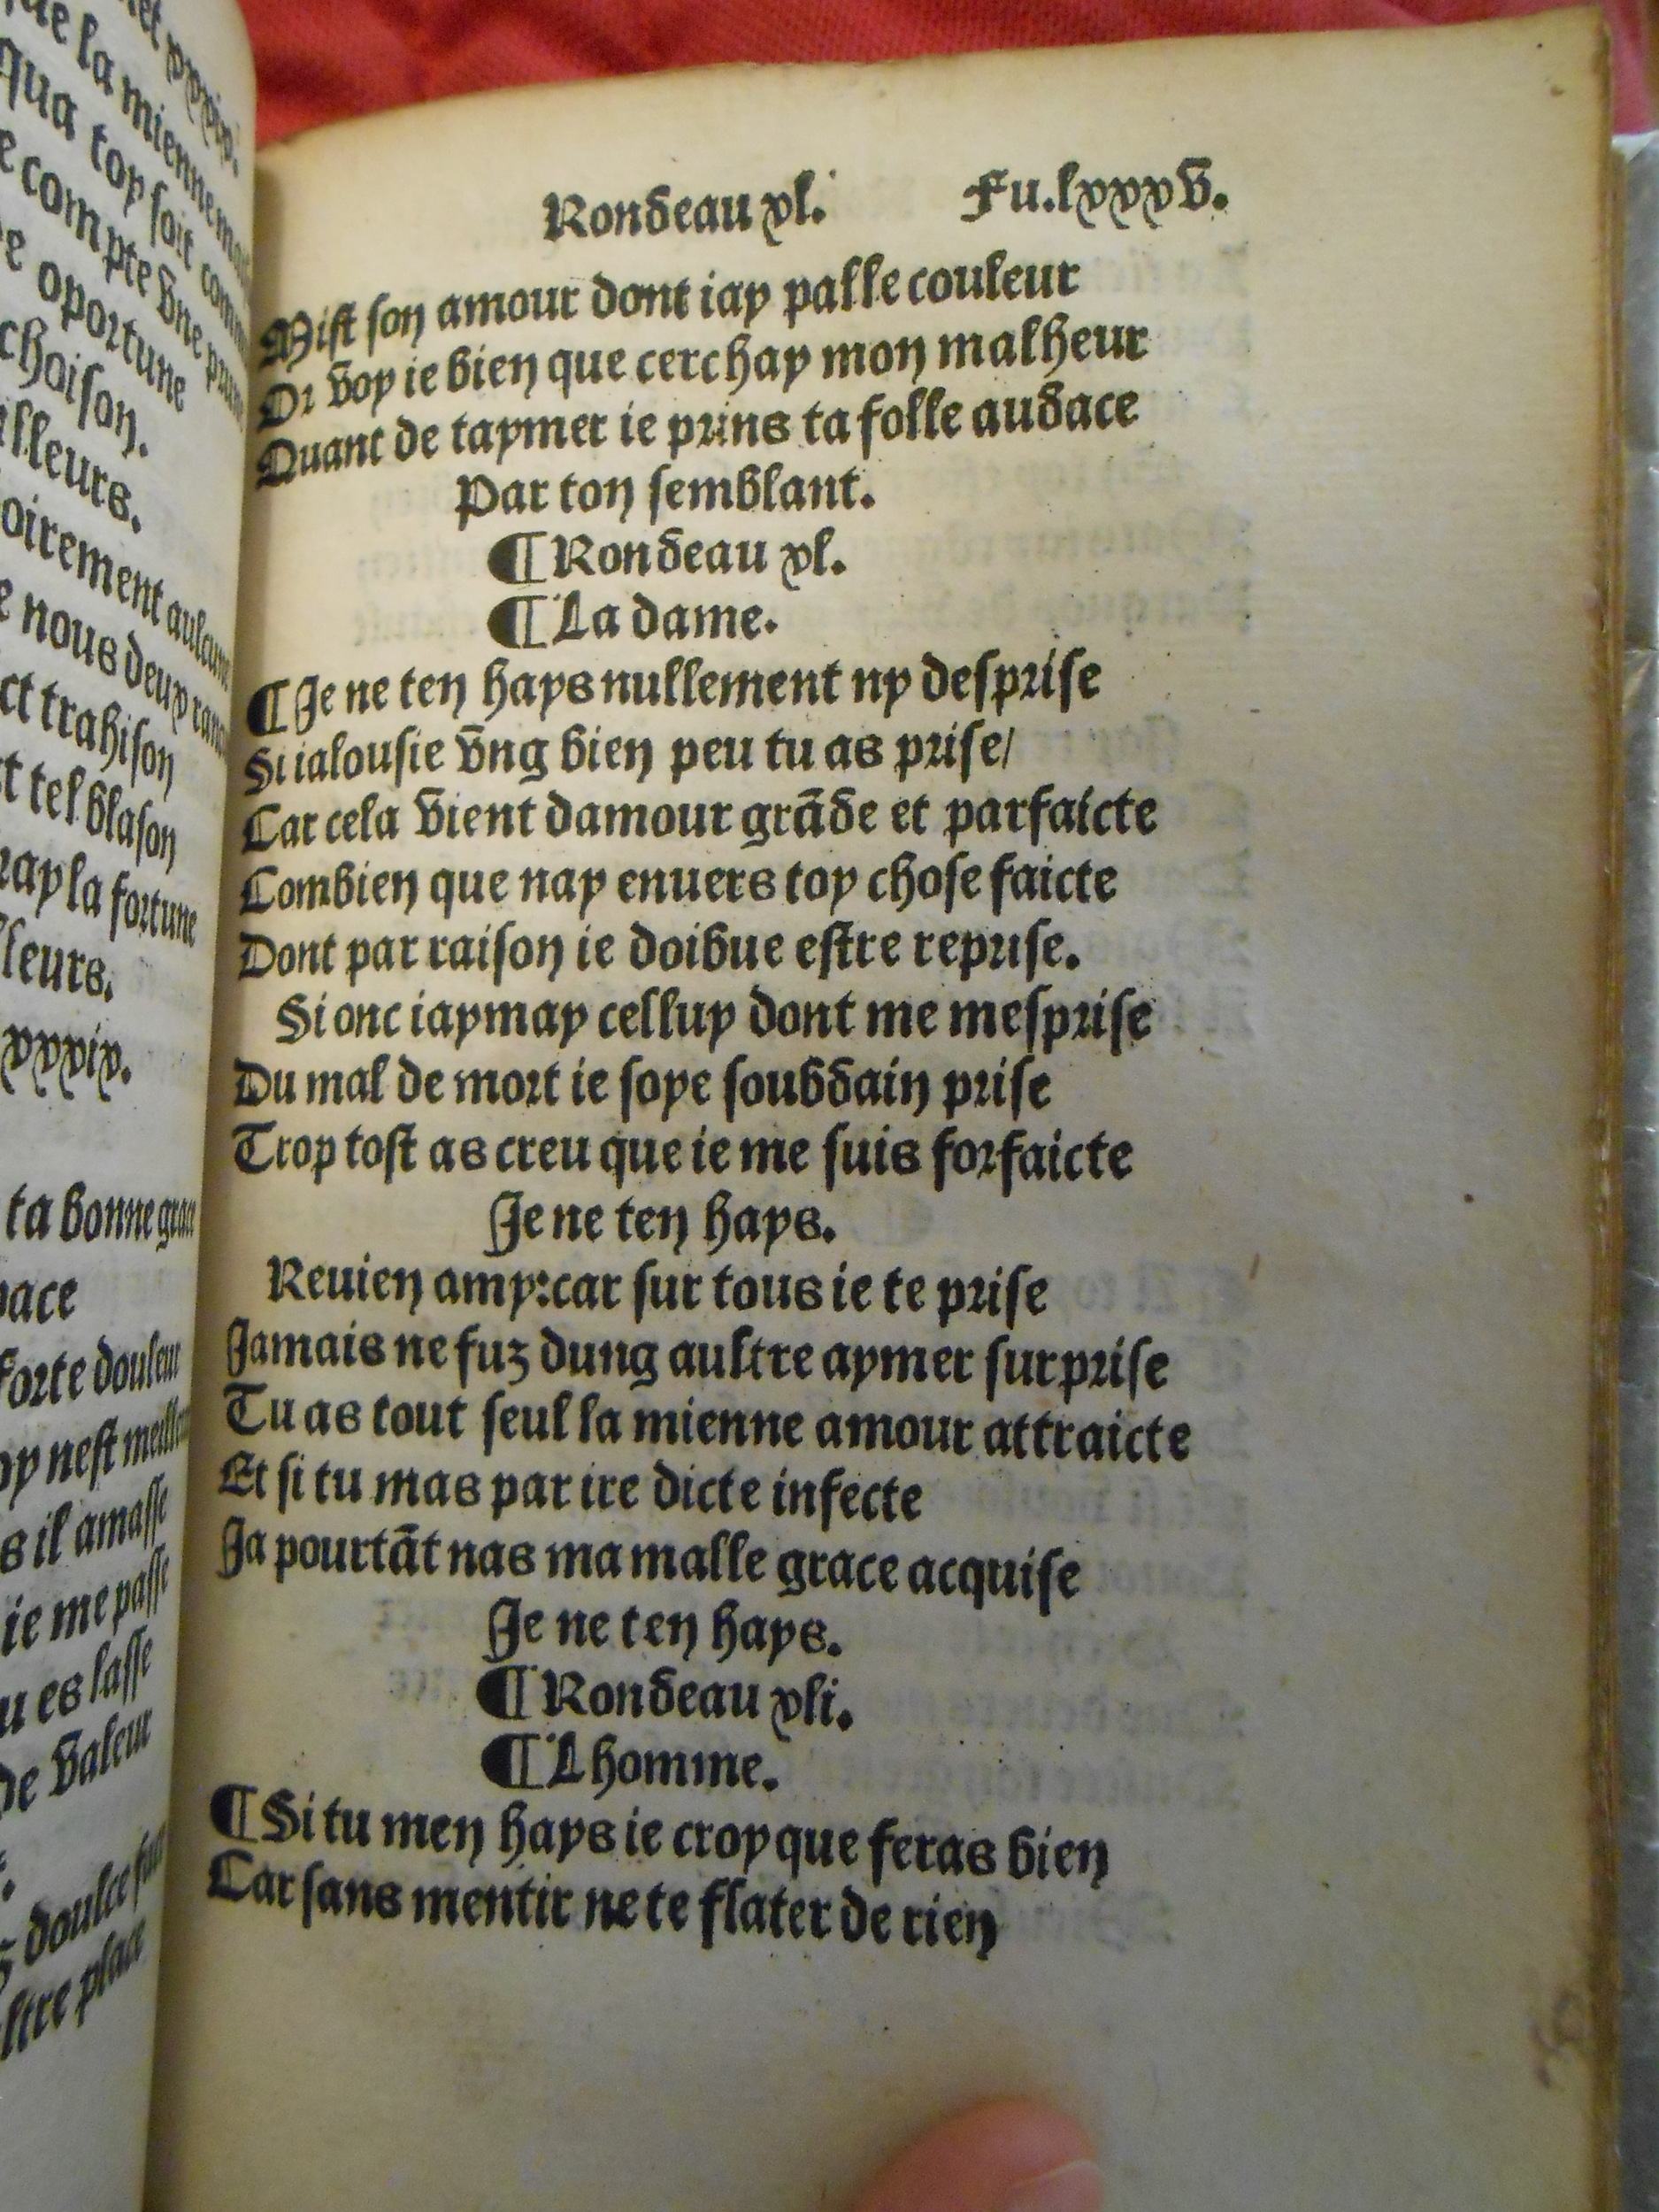 et xxxix.
ue la mienne
qua toy soit
e compte vne
e oportune
choison.
lleurs.
oirement
e nous deux
ct trahison
t tel blason
ray la fortune
lleurs.
xxxix.
ta bonne grace
ace
forte douleur
oy nest
s il amasse
ie me passe
u es lasse
de valeur
doulce
ltre place
Rondeau xl. Fu.lxxxv.
Mist son amour dont iay palle couleur
Or voy ie bien que cerchay mon malheur
Quant de taymer ie prins ta folle audace
Par ton semblant.
¶ Rondeau xl.
¶ La dame.
¶ Je ne ten hays nullement ny desprise
Si ialousie vng bien peu tu as prise/
Car cela vient damour grãde et parfaicte
Combien que nay enuers toy chose faicte
Dont par raison ie doibue estre reprise.
Si onc iaymay celluy dont me mesprise
Du mal de mort ie soye soubdain prise
Trop tost as creu que ie me suis forfaicte
Je ne ten hays.
Reuien amy:car sur tous ie te prise
Jamais ne fuz dung aultre aymer surprise
Tu as tout seul la mienne amour attraicte
Et si tu mas par ire dicte infecte
Ja pourtãt nas ma malle grace acquise
Je ne ten hays.
¶ Rondeau xli.
¶ Lhomme.
¶ Si tu men hays ie croy que feras bien
Car sans mentir ne te flater de rien